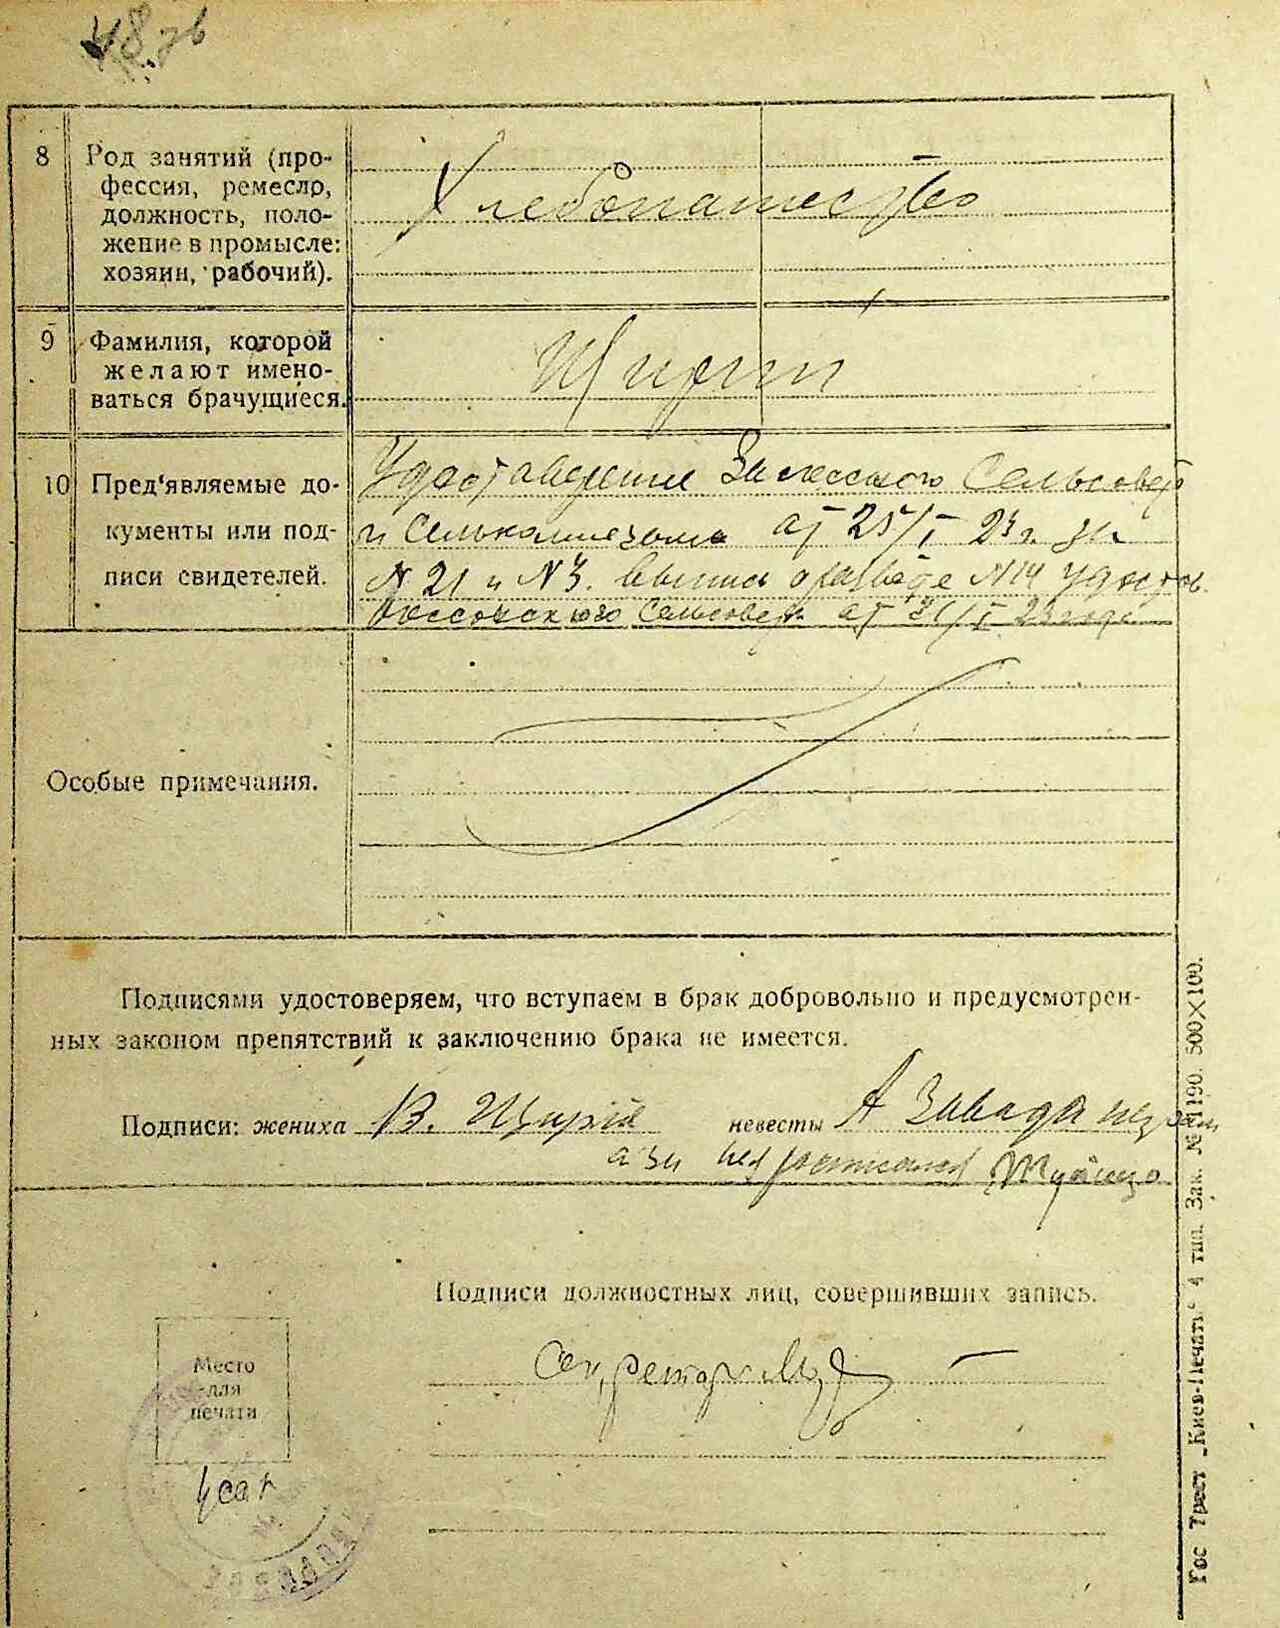 48 зв
8
Род занятий (про-
фессия, ремесло,
должность, поло-
жение в промысле:
хозяин, рабочий).
Хлебопашество
9
Фамилия, которой
желают имено-
ваться брачущиеся.
10
Пред'являемые до-
кументы или под-
писи свидетелей.
Сельсовет
и от 25/I 23 г. за
N 21 и N 3. Выпись о разводе N 14 удостов.
Сельсовета от 31/I 23 года
Особые примечания.
Подписями удостоверяем, что вступаем в брак добровольно и предусмотрен-
ных законом препятствий к заключению брака не имеется.
Подписи: жениха В. невесты А Завада неграм
а за нея росписался
Подписи должностных лиц, совершивших запись.
Секретарь
Место
для
печати
Гос Трест „Киев-Печать“ 4 тип. Зак. № 1190. 500×100.